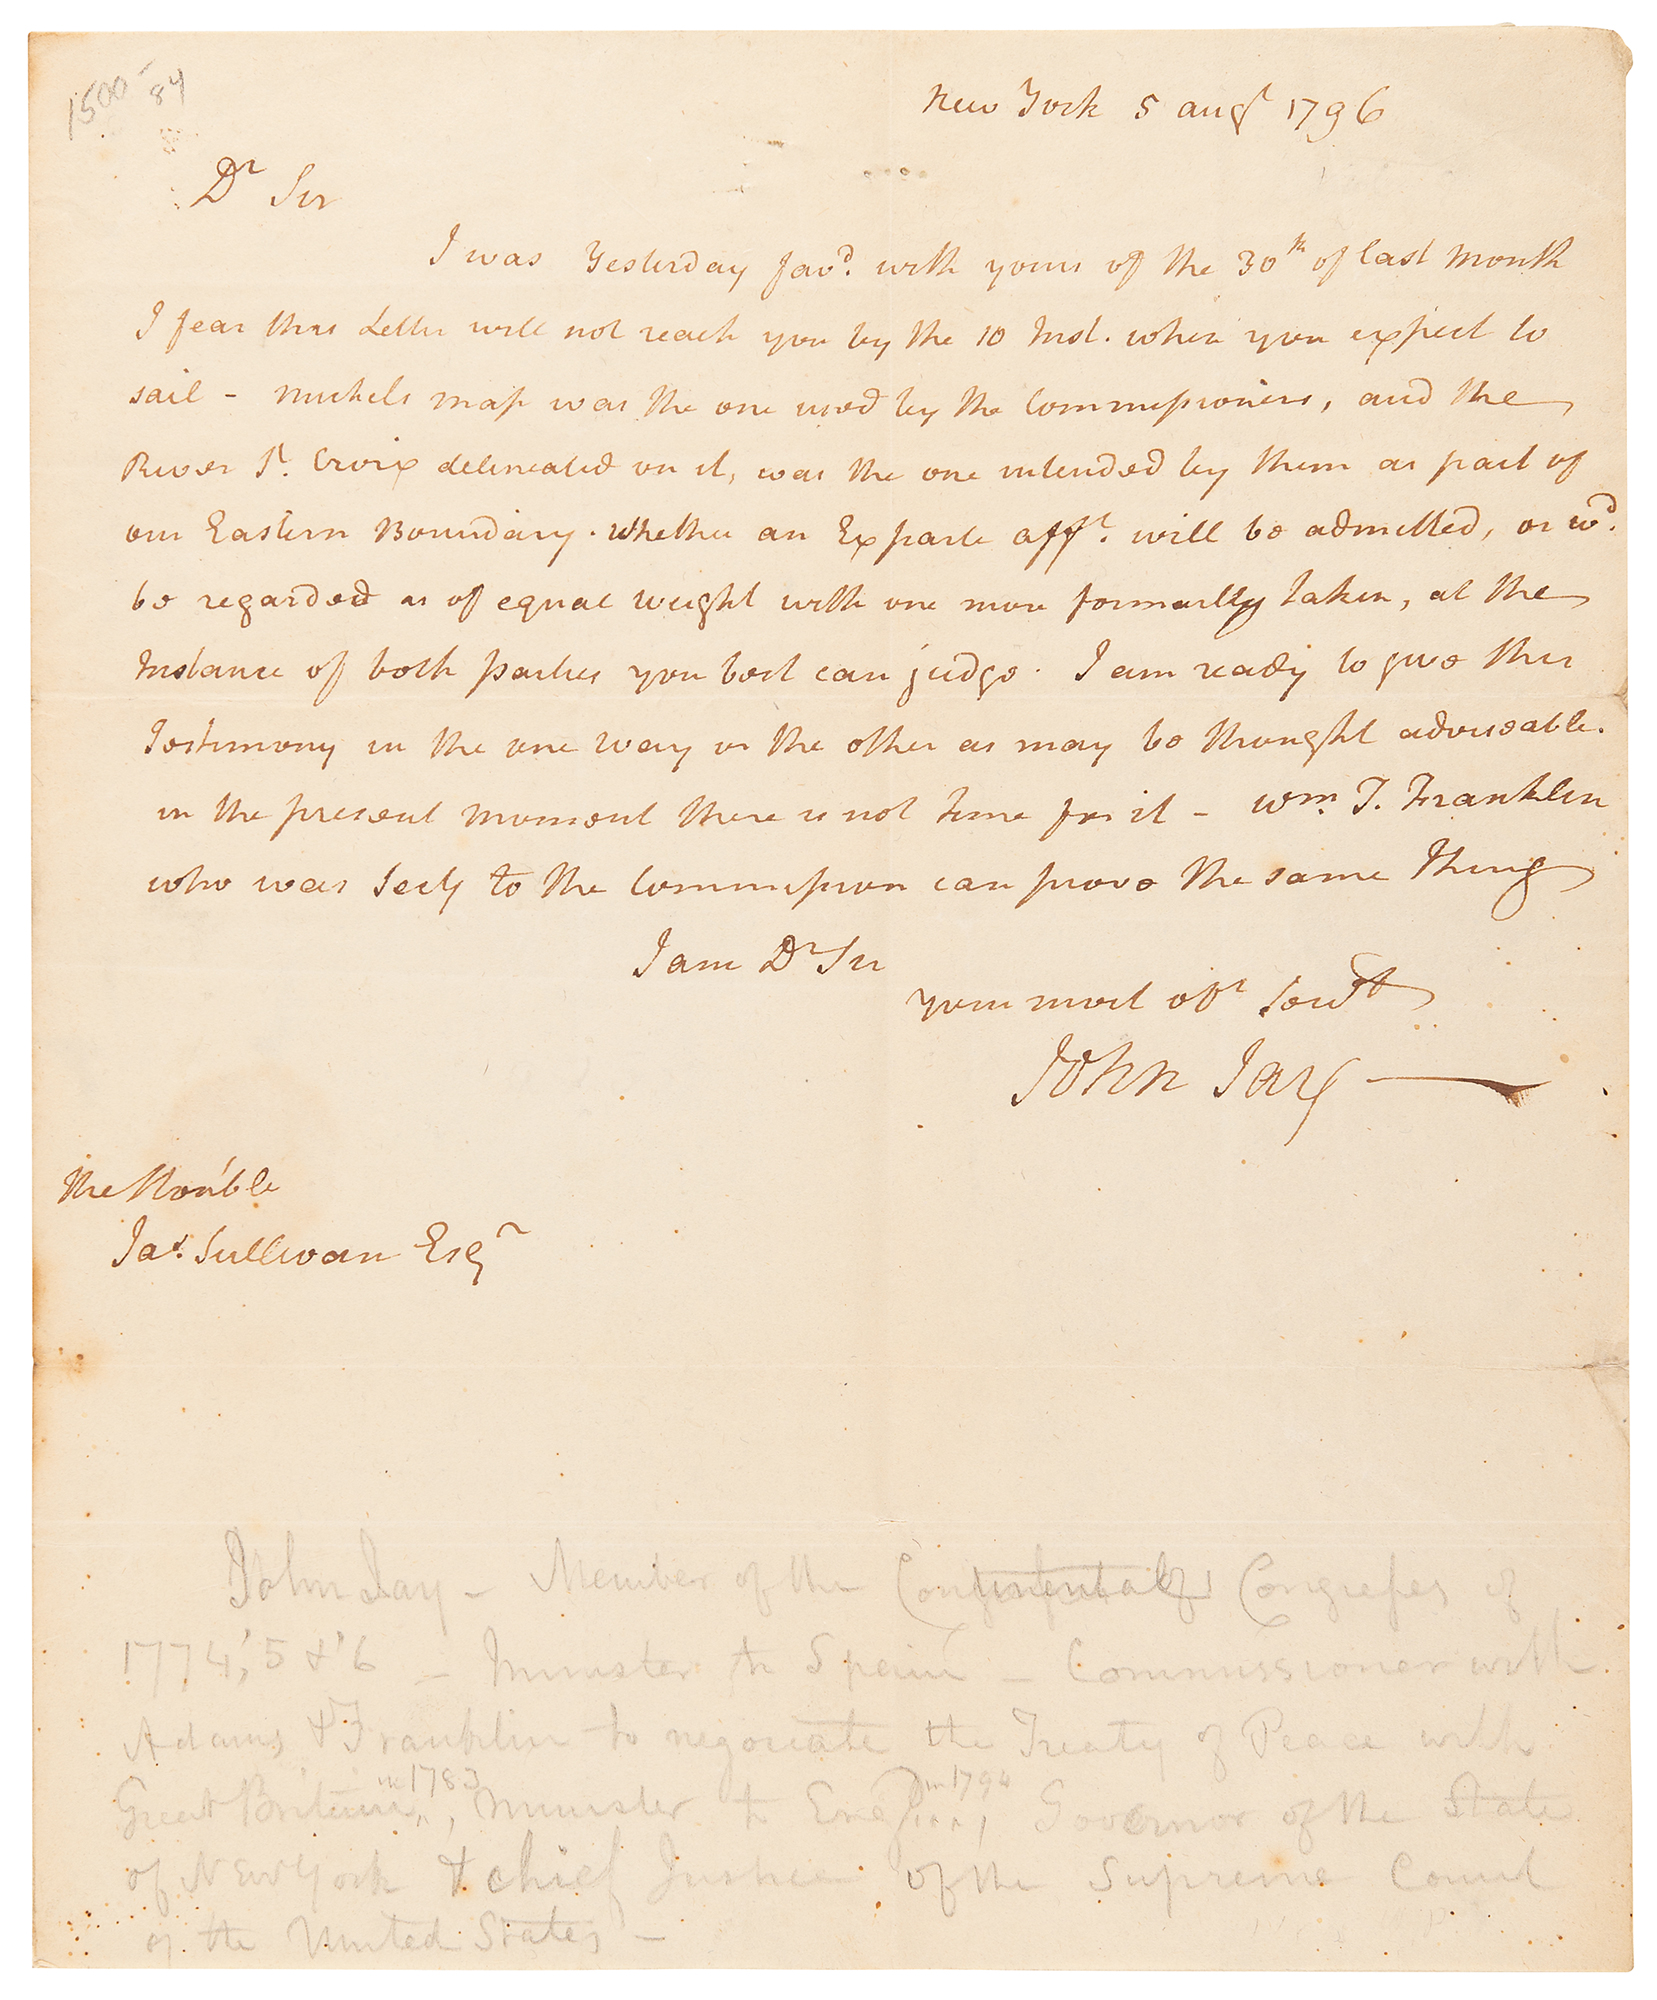 1500- 84
New York 5 Augt 1796
Dr Sir
I was Yesterday favd. with yours of the 30th of last month
I fear this Letter will not reach you by the 10 Inst. when you expect to
sail - Michels map was the one used by the Commissioners, and the
River St. Croix delineated on it, was the one intended by them as part of
our Eastern Boundary. Whether an Ex parte afft. will be admitted, or wd.
be regarded as of equal weight with one more formally taken, at the
Instance of both parties you best can judge. I am ready to give this
Testimony in the one way or the other as may be thought adviseable.
in the present moment there is not time for it - Wm. T. Franklin
who was Secy to the Commission can prove the same Thing
I am Dr Sir
your most obt Servt
John Jay
The Hon'ble
Jas. Sullivan Esqr
John Jay - Member of the Continental Congress of
1774,'5 &'6 - Minister to Spain - Commissioner with
Adams & Franklin to negociate the Treaty of Peace with
Great Britain in 1783, Minister to Engl in 1794, Governor of the State
of New York & chief Justice of the Supreme Court
of the United States -